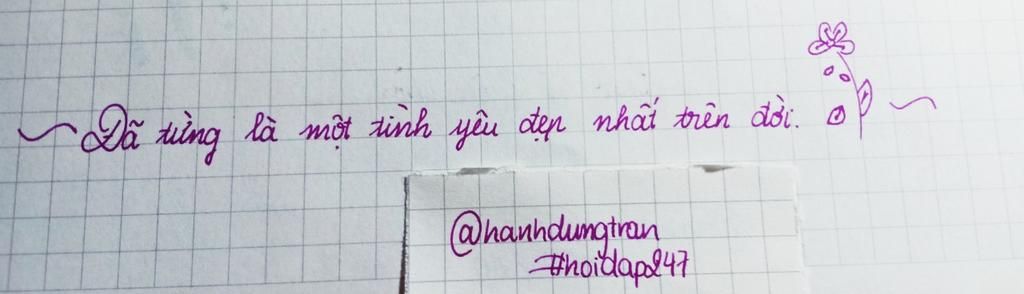 ~ Đã từng là một tình yêu đẹp nhất trên đời. ~
@hanhdungtran
#hoidap247